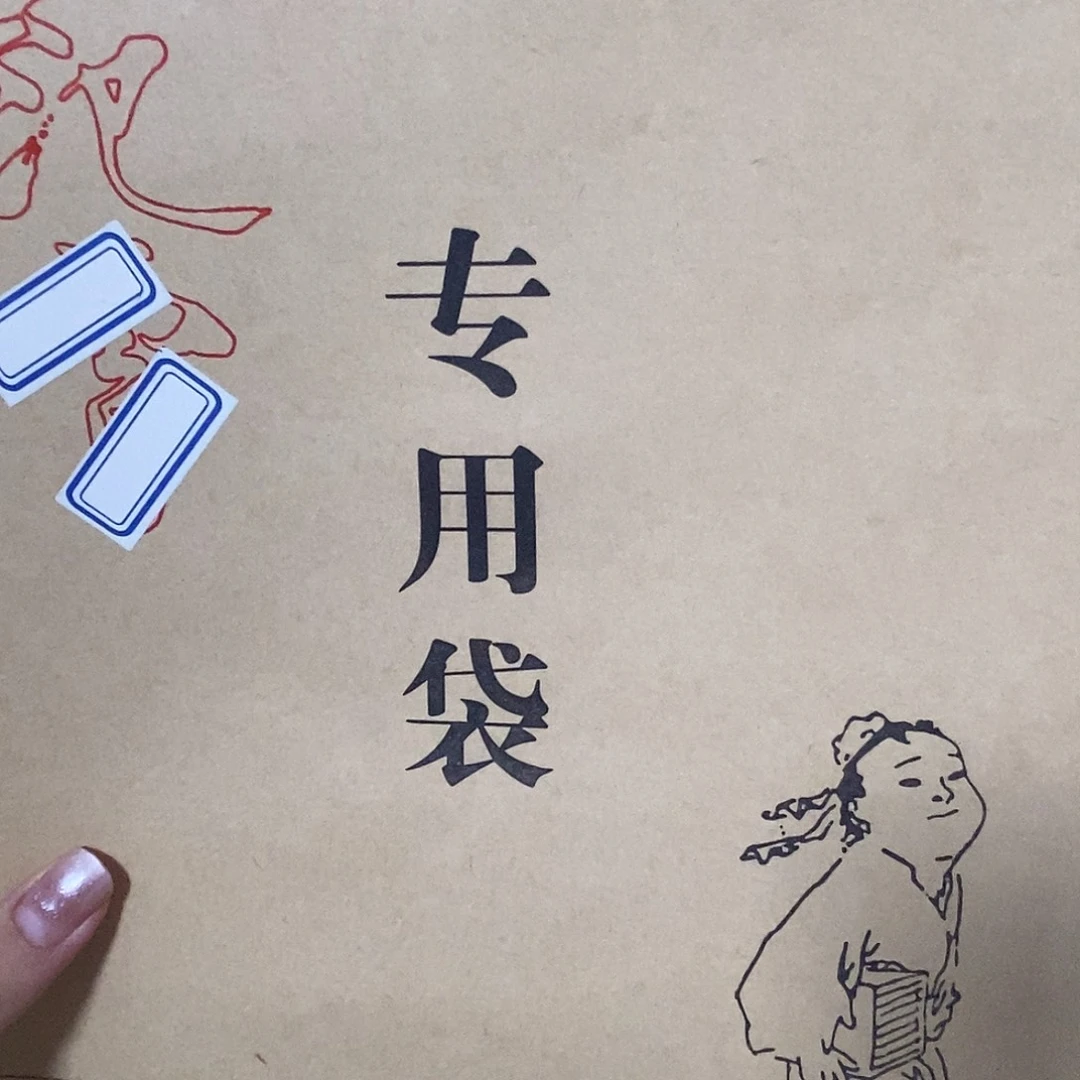 专用袋